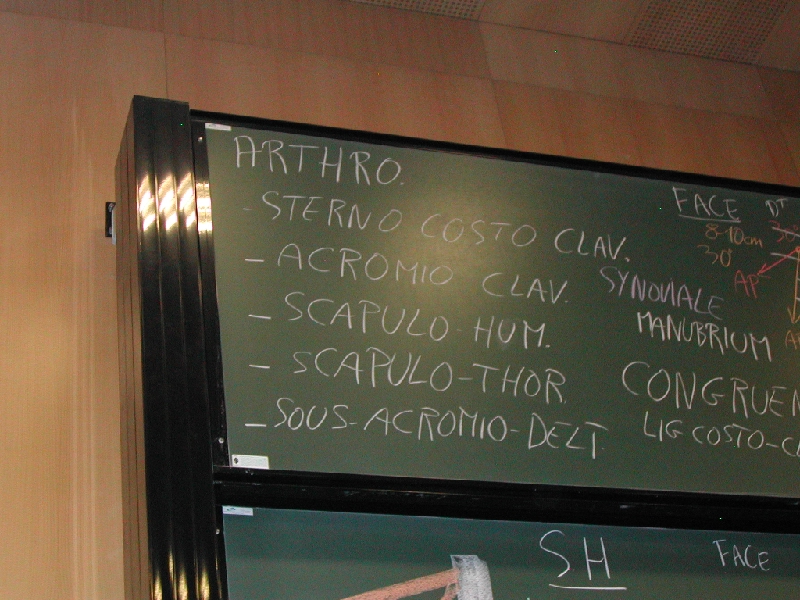 ARTHRO.
- STERNO COSTO CLAV.
- ACROMIO CLAV.
- SCAPULO-HUM.
- SCAPULO-THOR.
- SOUS-ACROMIO-DELT.
FACE
DT
8-10cm
30°
AP
SYNOVIALE
MANUBRIUM
CONGRUEN
LIG COSTO-CL
SH
FACE